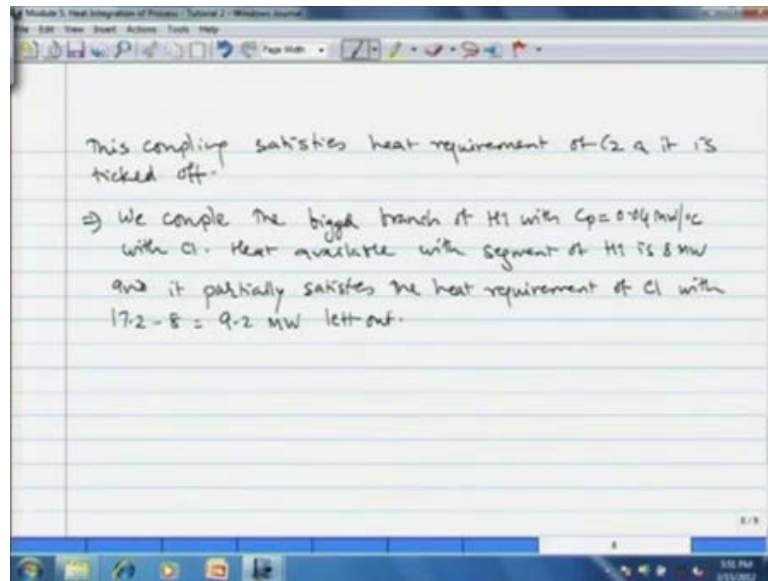 Module 5. Heat Integration of Process - Tutorial 2 - Windows Journal
File Edit View Insert Actions Tools Help
Page Width
This coupling satisfies heat requirement of C2 & it is
ticked off.
⇒ We couple the bigger branch of H1 with Cp = 0.04 MW/°C
with C1. Heat available with segment of H1 is 8 MW
and it partially satisfies the heat requirement of C1 with
17.2 - 8 = 9.2 MW left out.
8 / 9
8
5:51 PM
3/15/2012